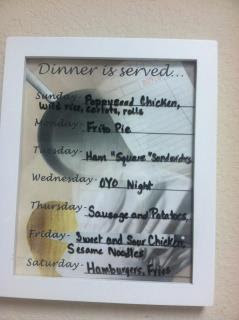 Dinner is served...
Sunday- Poppyseed Chicken,
Wild rice, carrots, rolls
Monday- Frito Pie
Tuesday- Ham "Square" Sandwiches
Wednesday- OYO Night
Thursday- Sausage and Potatoes
Friday- Sweet and Sour Chicken
Sesame Noodles
Saturday- Hamburgers, Fries